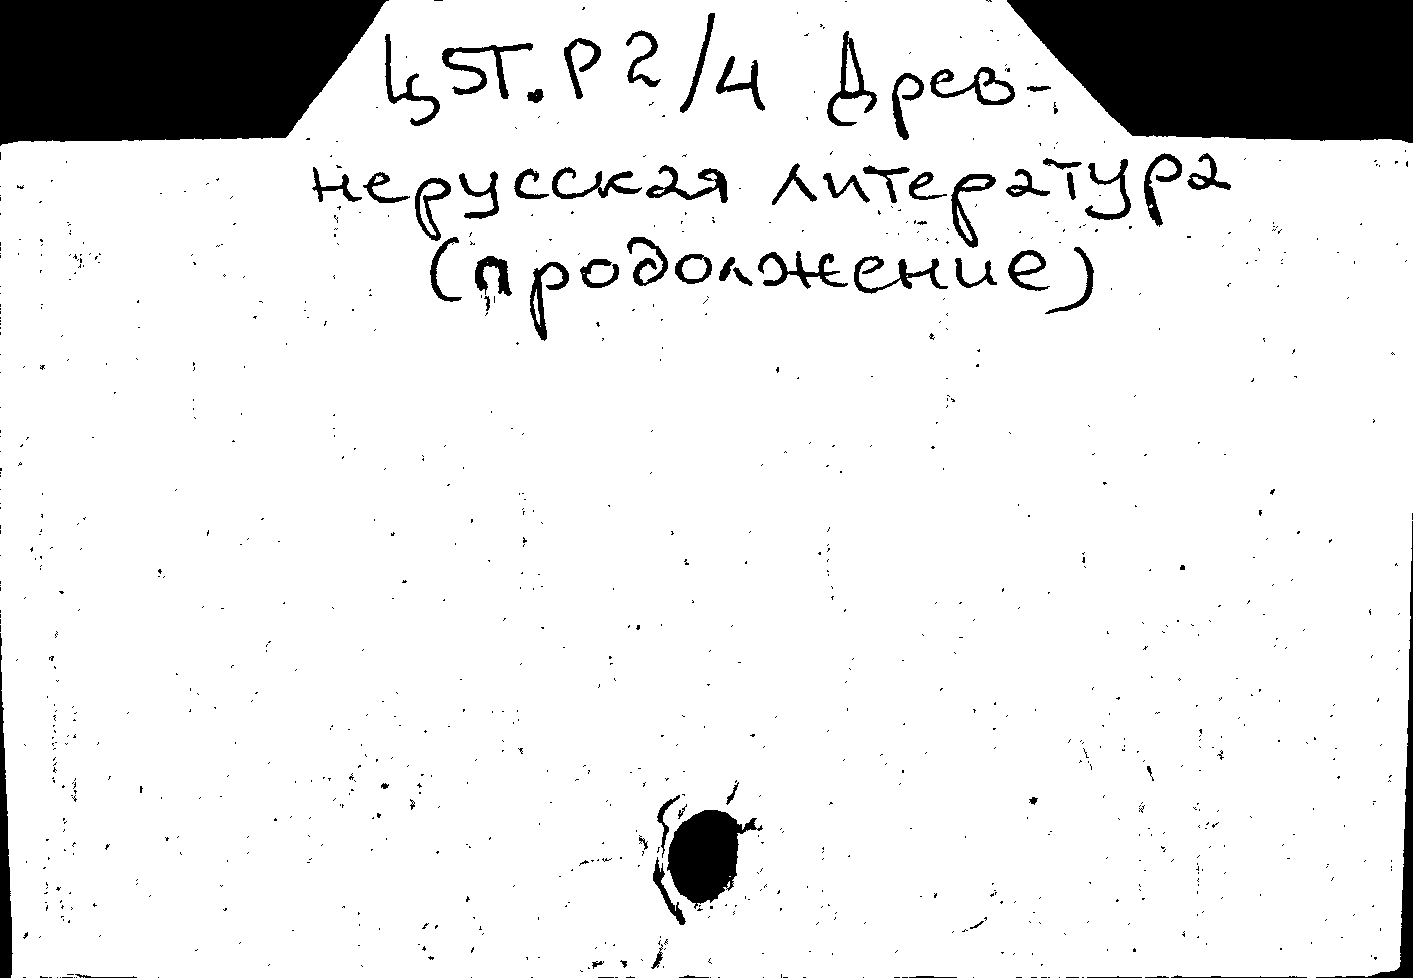 Ц5Т.Р2/4 Древ-
нерусская литература
(продолжение)